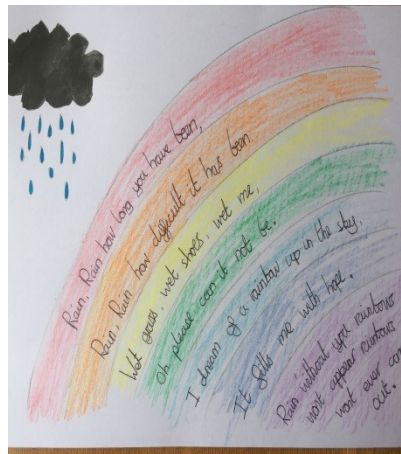 Rain, Rain how long you have been,
Rain, Rain how difficult it has been.
Wet grass, wet shoes, wet me,
Oh please can it not be.
I dream of a rainbow up in the sky,
It fills me with hope.
Rain without you rainbows
wont appear rainbows
wont ever com
out.